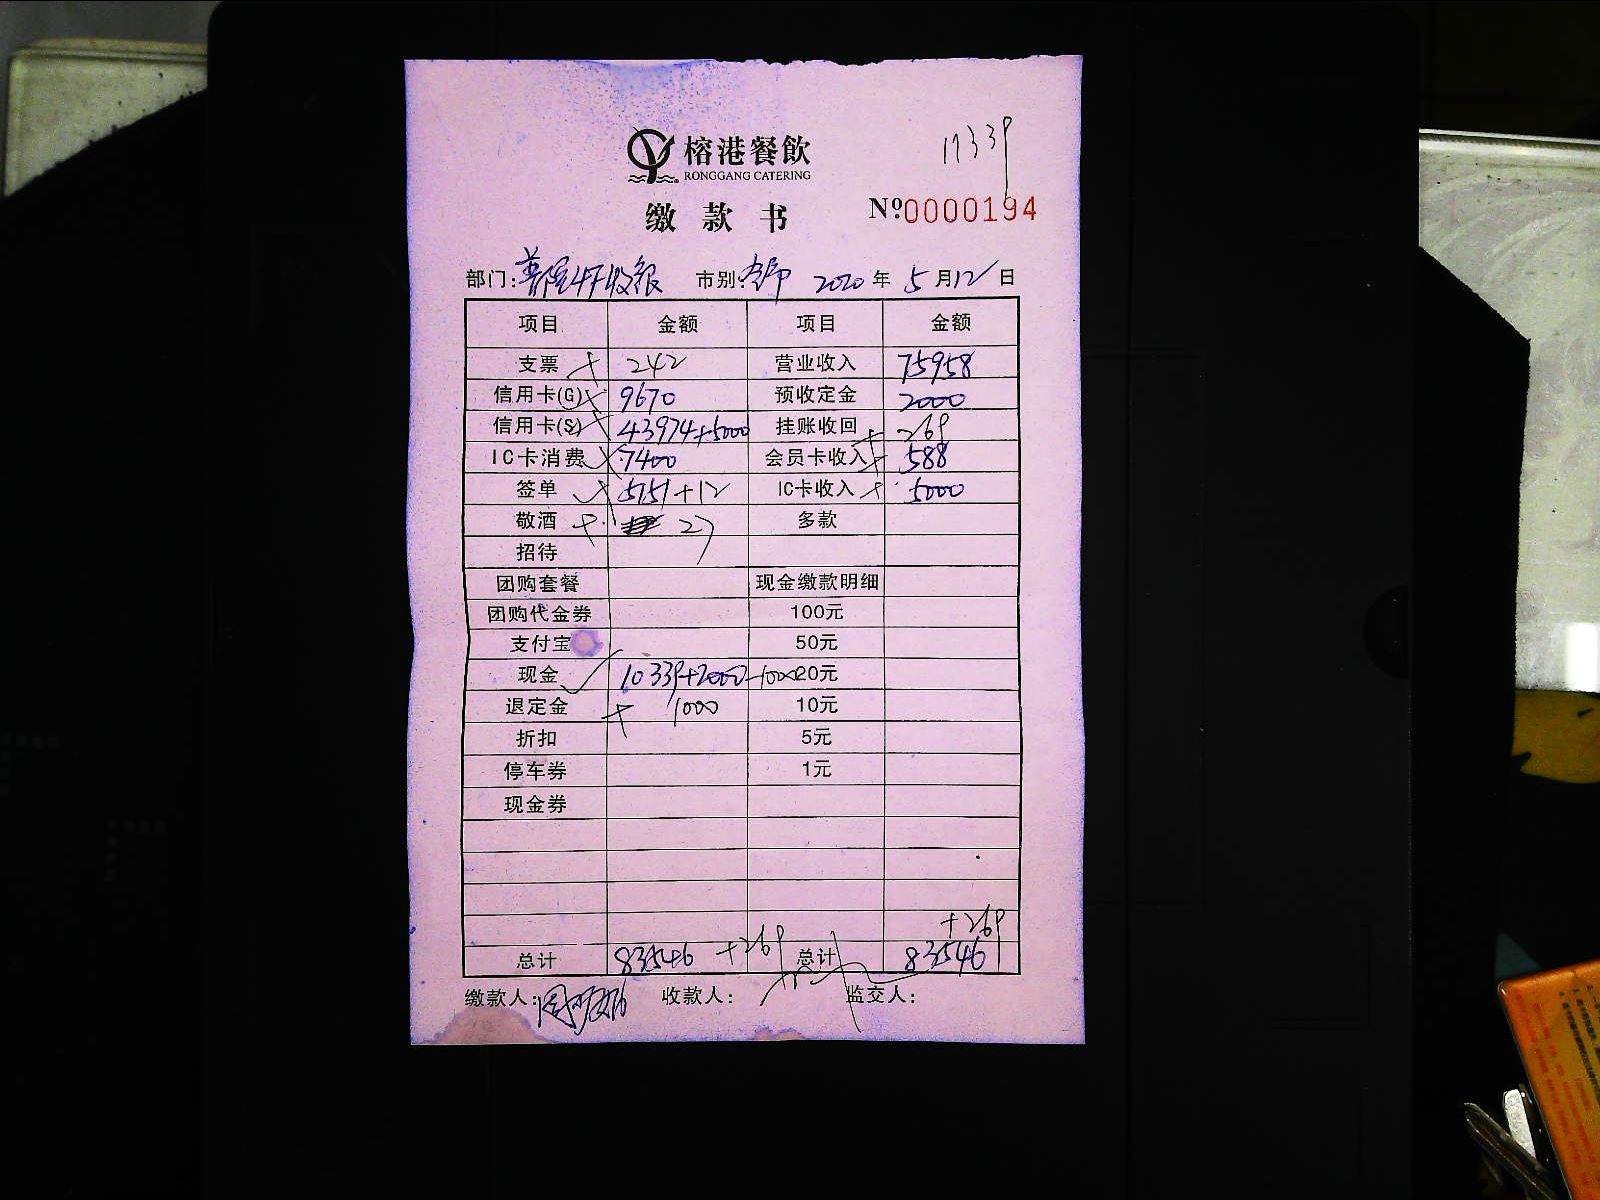 17339
榕港餐飲
RONGGANG CATERING
缴款书
Nº0000194
部门: 市别: 2020年5月12日
项目 金额 项目 金额
支票 242 营业收入 75958
信用卡(G) 9670 预收定金 2000
信用卡(S) 43974+5000 挂账收回 + 269
IC卡消费 7400 会员卡收入 + 588
签单 5151+12 IC卡收入 + 5000
敬酒 27 多款
招待
团购套餐 现金缴款明细
团购代金券 100元
支付宝 50元
现金 10339+2000-1000 20元
退定金 1000 10元
折扣 5元
停车券 1元
现金券
+269
总计 83546 +269 总计 83546
缴款人: 收款人: 监交人: